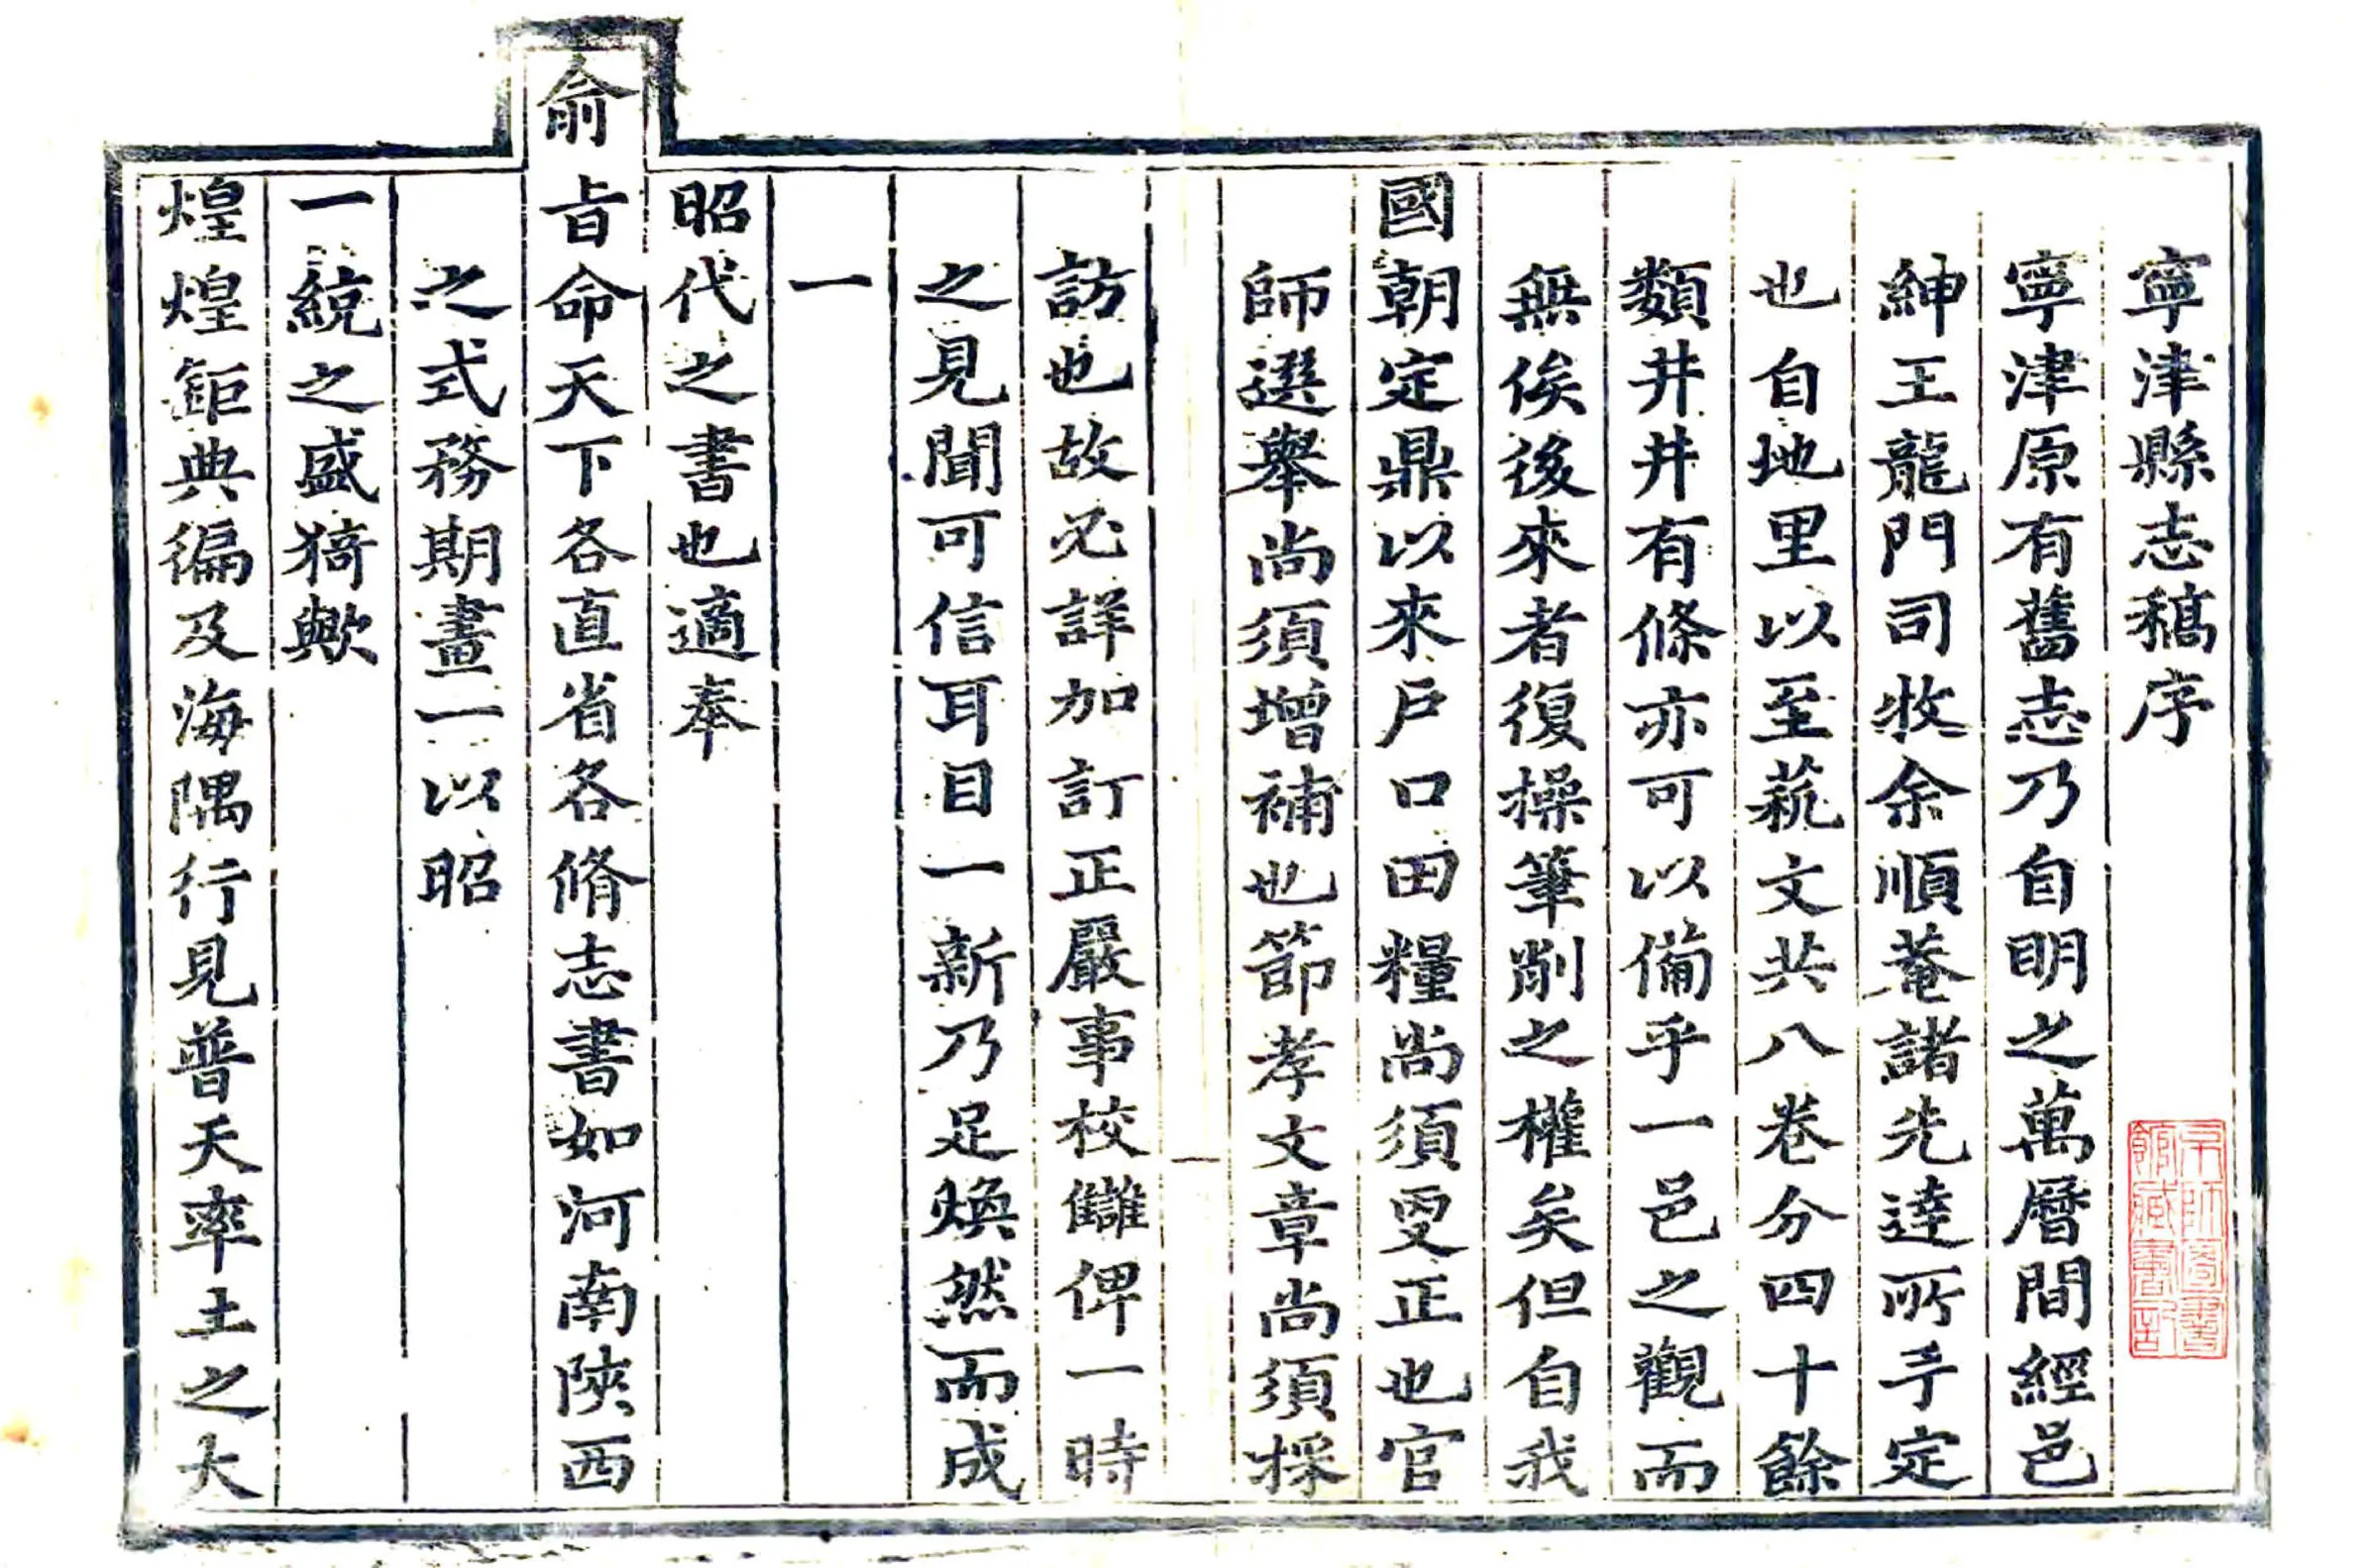 寧津縣志稿序
寧津原有舊志乃自明之萬曆間經邑
紳王龍門司牧余順菴諸先達所手定
也自地里以至蓺文共八巻分四十餘
類井井有條亦可以備乎一邑之觀而
無俟後來者復操筆削之權矣但自我
國朝定鼎以來戶口田糧尚須更正也官
師選舉尚須增補也節孝文章尚須採
訪也故必詳加訂正嚴事校讎俾一時
之見聞可信耳目一新乃足煥然而成
一
昭代之書也適奉
俞旨命天下各直省各脩志書如河南陝西
之式務期畫一以昭
一統之盛猗歟
煌煌鉅典徧及海隅行見普天率土之大
京師圖書
館藏書記